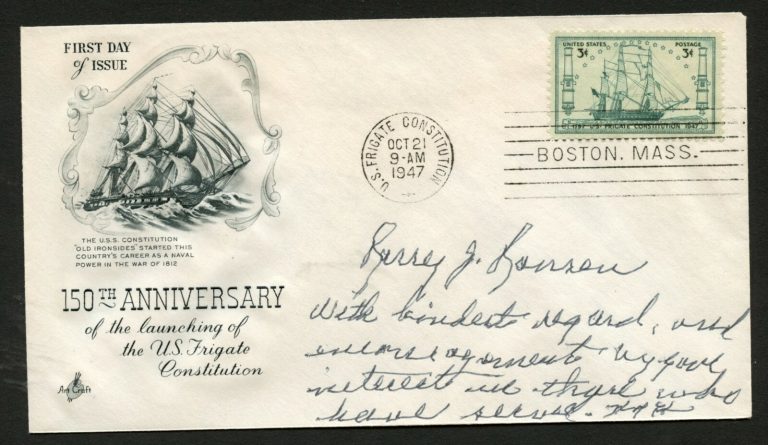 FIRST DAY
of ISSUE
THE U.S.S. CONSTITUTION
"OLD IRONSIDES" STARTED THIS
COUNTRY'S CAREER AS A NAVAL
POWER IN THE WAR OF 1812
150TH ANNIVERSARY
of the launching of
the U.S. Frigate
Constitution
Art Craft
U.S. FRIGATE CONSTITUTION
OCT 21
9-AM
1947
UNITED STATES POSTAGE
3¢ 3¢
1797 U.S. FRIGATE CONSTITUTION 1947
BOSTON, MASS.
J.
With kindest regard, and
encouragement
interest in those who
have